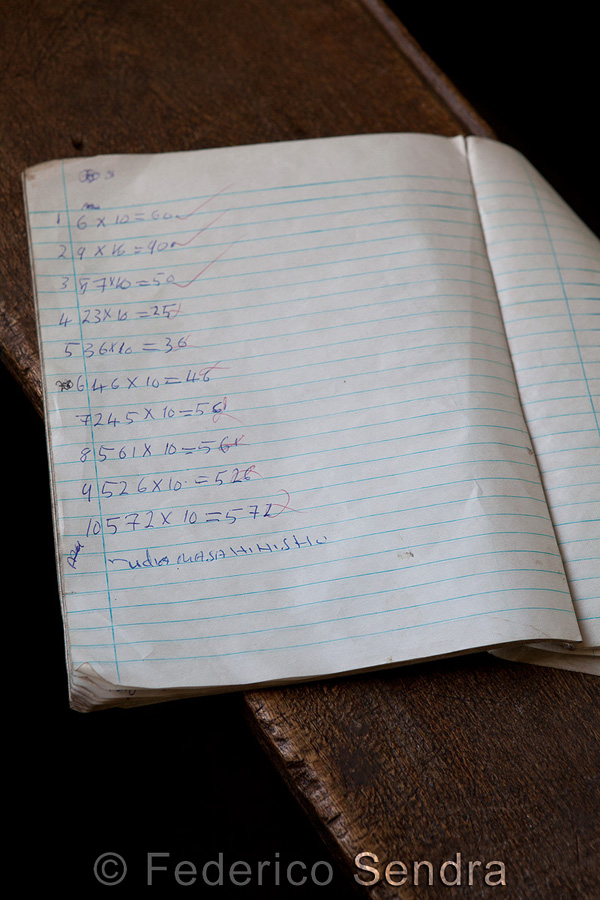 1 6 x 10 = 60
2 9 x 10 = 90
3 5 x 10 = 50
4 23 x 10 = 25
5 36 x 10 = 36
6 46 x 10 = 46
7 245 x 10 = 56
8 561 x 10 = 561
9 526 x 10 = 526
10 572 x 10 = 572
Rudia MASAHIHISHO
© Federico Sendra